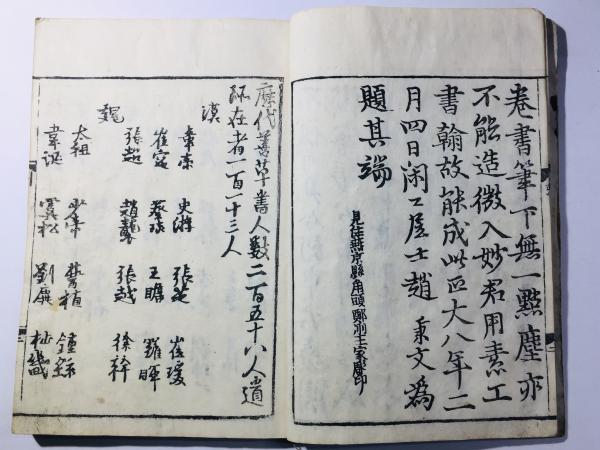 卷書筆下無一點塵亦
不能造微入妙君用素工
書翰故能成此正大八年二
月四日闲〻居士趙 秉文為
題其端
見住燕京縣角頭鄭州王家雕印
歷代善草書人數二百五十八人遺
跡在者一百一十三人
漢
章帝 史游 張芝 崔瑗
崔寔 蔡琰 王瞻 羅暉
張超 趙襲 張越 徐幹
魏
太祖 少帝 曹植 鍾繇
韋誕 劉廙